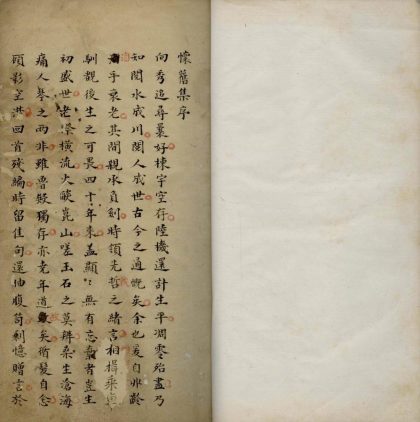 懷舊集序
向秀追尋曩好棟宇空存陸機還計生平凋零殆盡乃
知閱水成川閱人成世古今之通慨矣余也爰自丱齡
乎衰老其間親承負劍時領先哲之緒言相揖乘
馴觀後生之可畏四十年來盖顯〻無有忘者豈生
初盛世老橫流火燄崑山嗟玉石之莫辨桑生滄海
痛人琴之兩非雖魯殿獨存亦老年道矣循髮自念
頋影空回首殘編時留佳句還抽腹笥剩憶贈言於